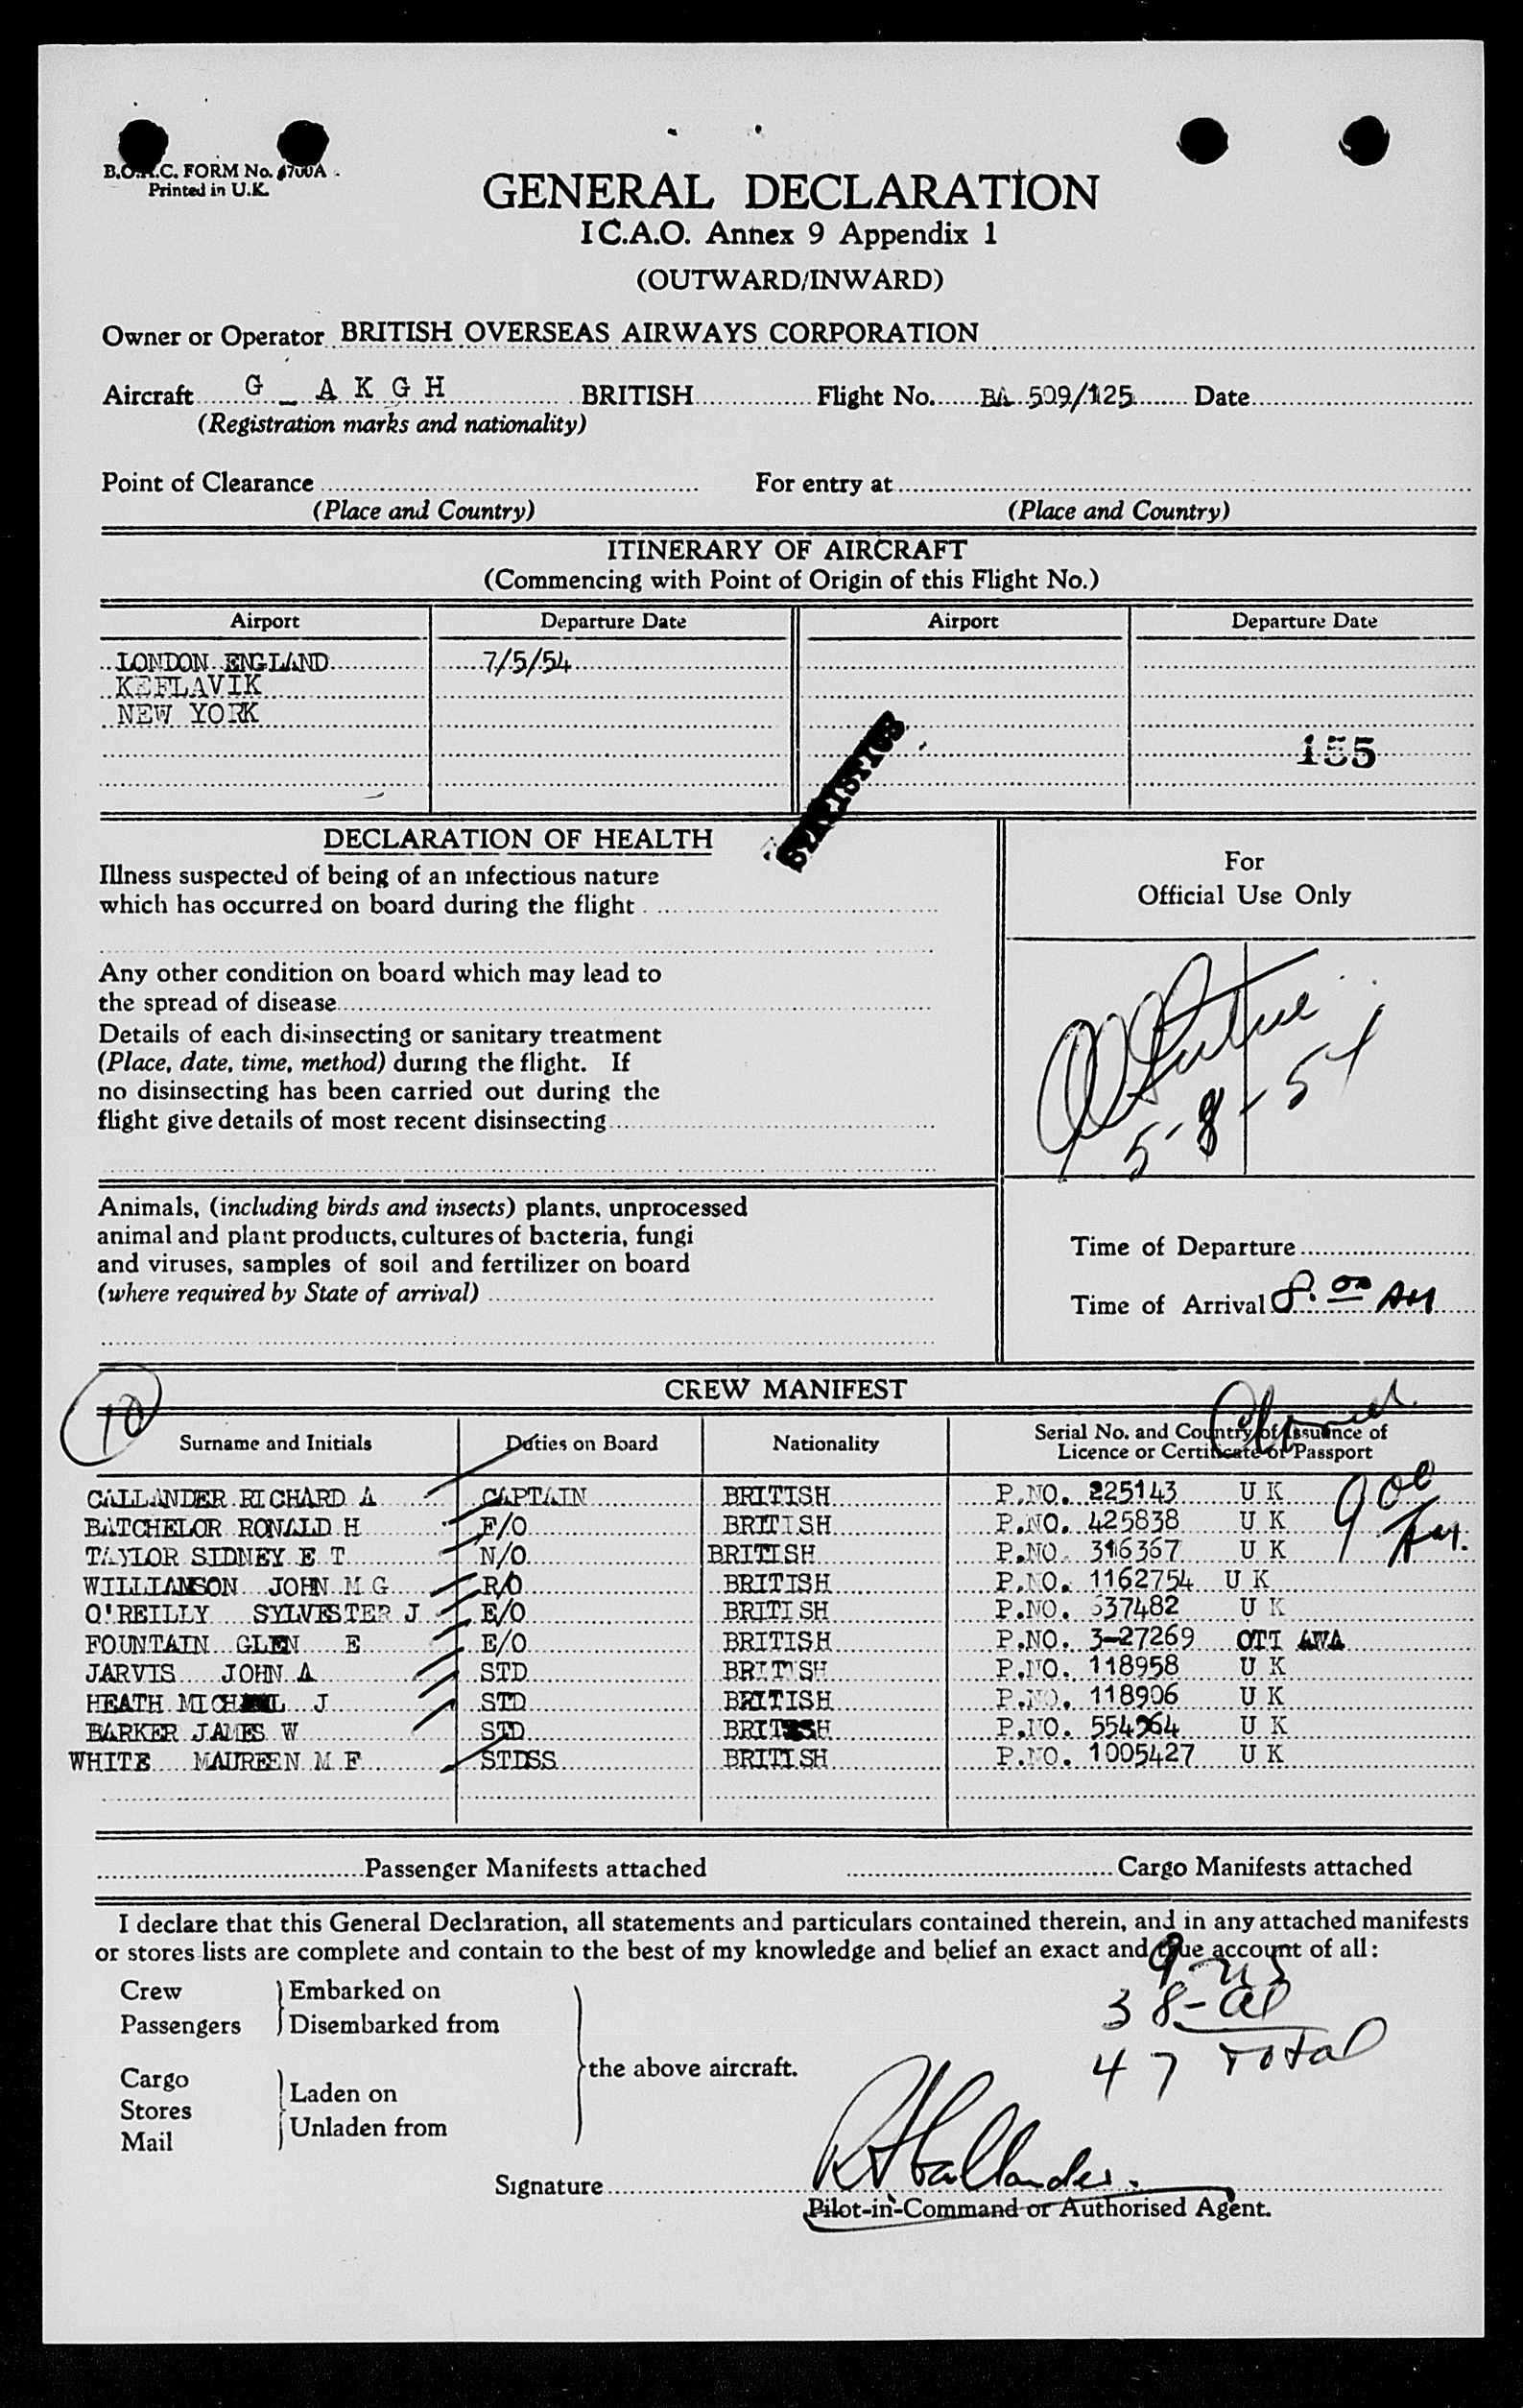 B.O.A.C. FORM No. 1700A
Printed in U.K.
GENERAL DECLARATION
I C.A.O. Annex 9 Appendix 1
(OUTWARD/INWARD)
Owner or Operator BRITISH OVERSEAS AIRWAYS CORPORATION
Aircraft G _ A K G H BRITISH Flight No. BA 509/125 Date
(Registration marks and nationality)
Point of Clearance For entry at
(Place and Country) (Place and Country)
ITINERARY OF AIRCRAFT
(Commencing with Point of Origin of this Flight No.)
Airport Departure Date Airport Departure Date
LONDON ENGLAND 7/5/54
KEFLAVIK
NEW YORK
155
STATISTICS
DECLARATION OF HEALTH
Illness suspected of being of an infectious nature
which has occurred on board during the flight
Any other condition on board which may lead to
the spread of disease
Details of each disinsecting or sanitary treatment
(Place, date, time, method) during the flight. If
no disinsecting has been carried out during the
flight give details of most recent disinsecting
For
Official Use Only
5-8-54
Animals, (including birds and insects) plants, unprocessed
animal and plant products, cultures of bacteria, fungi
and viruses, samples of soil and fertilizer on board
(where required by State of arrival)
Time of Departure
Time of Arrival 8.00 AM
10
CREW MANIFEST
Surname and Initials Duties on Board Nationality Serial No. and Country of Issuance of
Licence or Certificate or Passport
CALLANDER RICHARD A CAPTAIN BRITISH P.NO. 225143 U K
BATCHELOR RONALD H F/O BRITISH P.NO. 425838 U K
TAYLOR SIDNEY E T N/O BRITISH P.NO. 316367 U K
WILLIAMSON JOHN M G R/O BRITISH P.NO. 1162754 U K
O'REILLY SYLVESTER J E/O BRITISH P.NO. 537482 U K
FOUNTAIN GLEN E E/O BRITISH P.NO. 3-27269 OTT AWA
JARVIS JOHN A STD BRITISH P.NO. 118958 U K
HEATH MICHAEL J STD BRITISH P.NO. 118906 U K
BARKER JAMES W STD BRITISH P.NO. 554964 U K
WHITE MAUREEN M F STDSS BRITISH P.NO. 1005427 U K
Passenger Manifests attached Cargo Manifests attached
I declare that this General Declaration, all statements and particulars contained therein, and in any attached manifests
or stores lists are complete and contain to the best of my knowledge and belief an exact and true account of all:
Crew
Passengers
Embarked on
Disembarked from
Cargo
Stores
Mail
Laden on
Unladen from
the above aircraft.
9-US
38-al
47 Total
Signature R A Callander.
Pilot-in-Command or Authorised Agent.